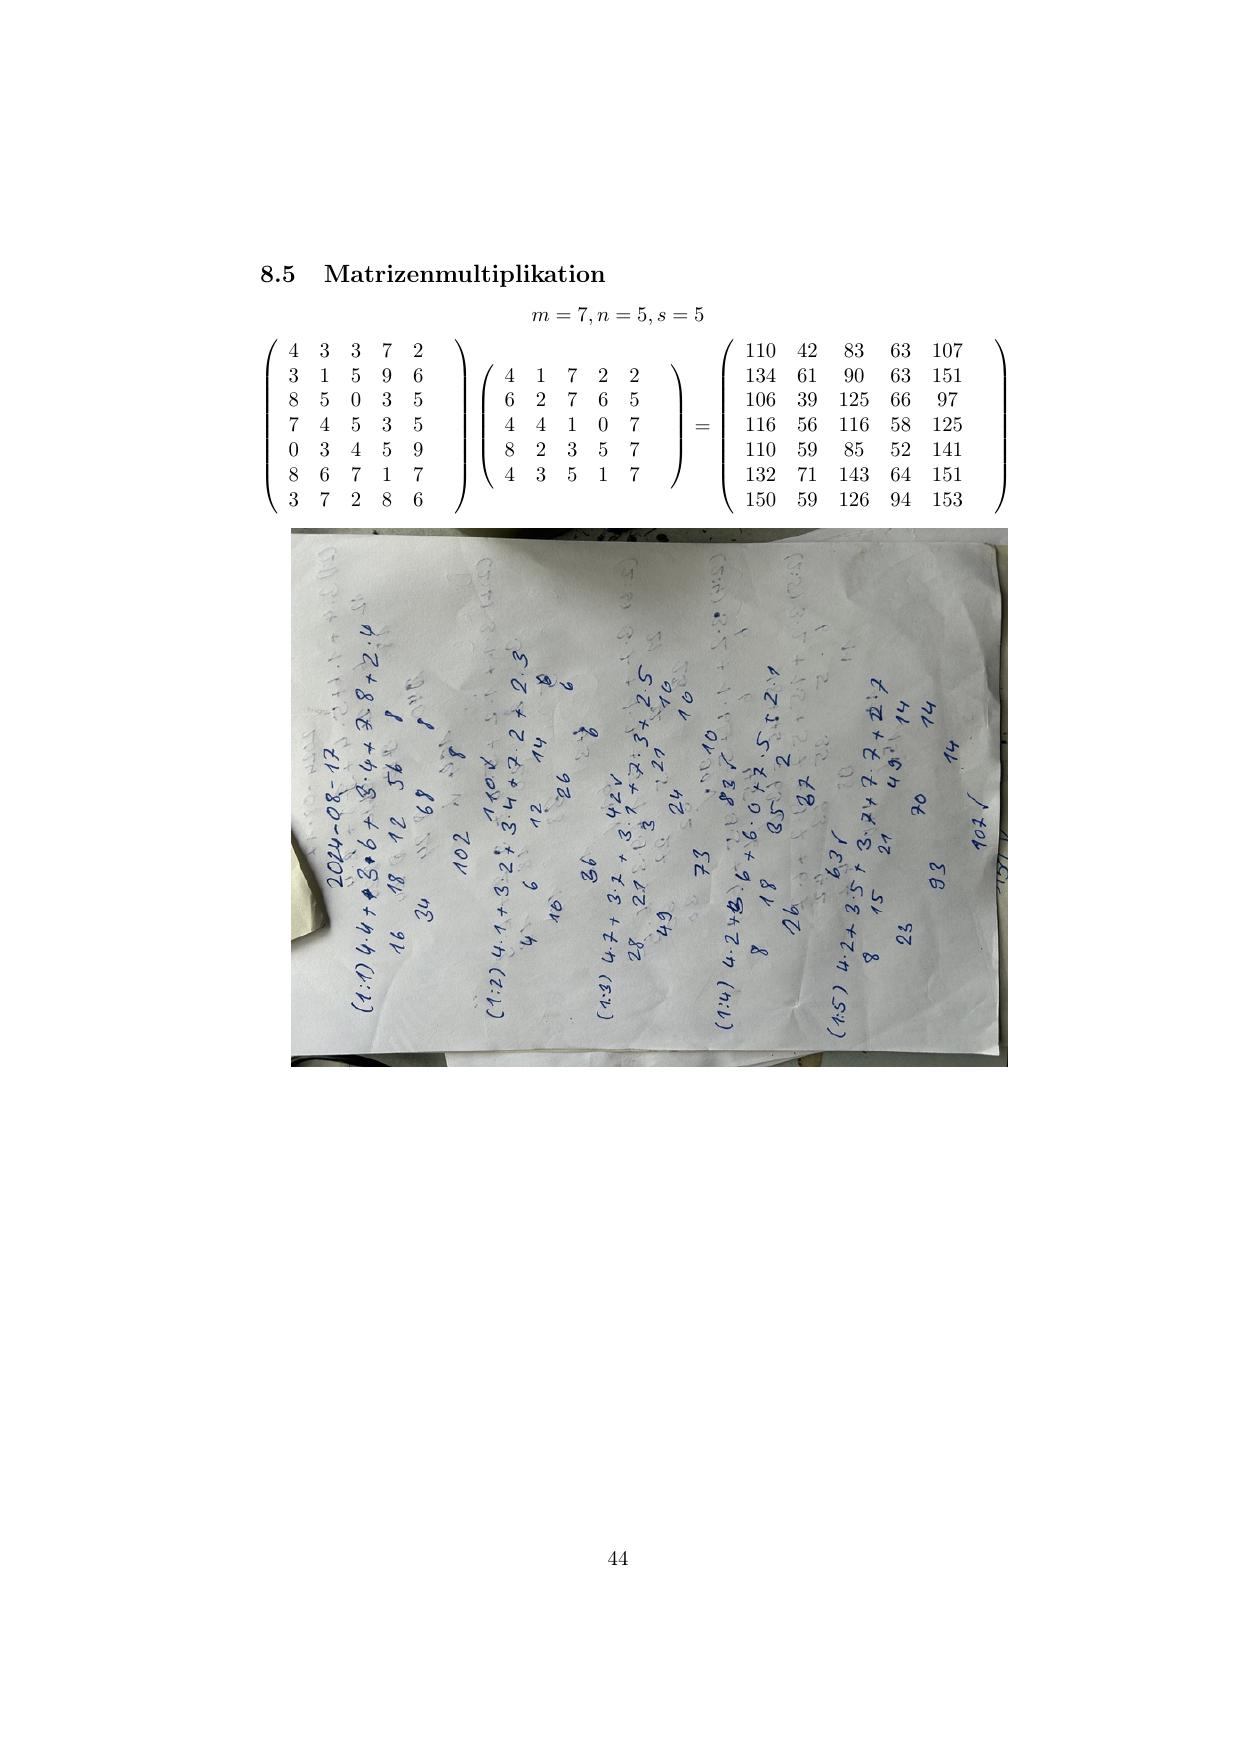 8.5 Matrizenmultiplikation
m = 7, n = 5, s = 5
4 3 3 7 2
3 1 5 9 6
8 5 0 3 5
7 4 5 3 5
0 3 4 5 9
8 6 7 1 7
3 7 2 8 6
4 1 7 2 2
6 2 7 6 5
4 4 1 0 7
8 2 3 5 7
4 3 5 1 7
=
110 42 83 63 107
134 61 90 63 151
106 39 125 66 97
116 56 116 58 125
110 59 85 52 141
132 71 143 64 151
150 59 126 94 153
2024-08-17
(1:1) 4·4+3·6+3·4+7·8+2·4
16 18 12 56 8
34 68 8
102 8
110 ✓
(1:2) 4·1+3·2+3·4+7·2+2·3
4 6 12 14 6
10 26 6
36 6
42 ✓
(1:3) 4·7+3·7+3·1+7·3+2·5
28 21 3 21 10
49 24 10
73 10
83 ✓
(1:4) 4·2+3·6+6·0+7·5+2·1
8 18 35 2
26 37
63 ✓
(1:5) 4·2+3·5+3·7+7·7+2·7
8 15 21 49 14
23 70 14
93 14
107 ✓
44